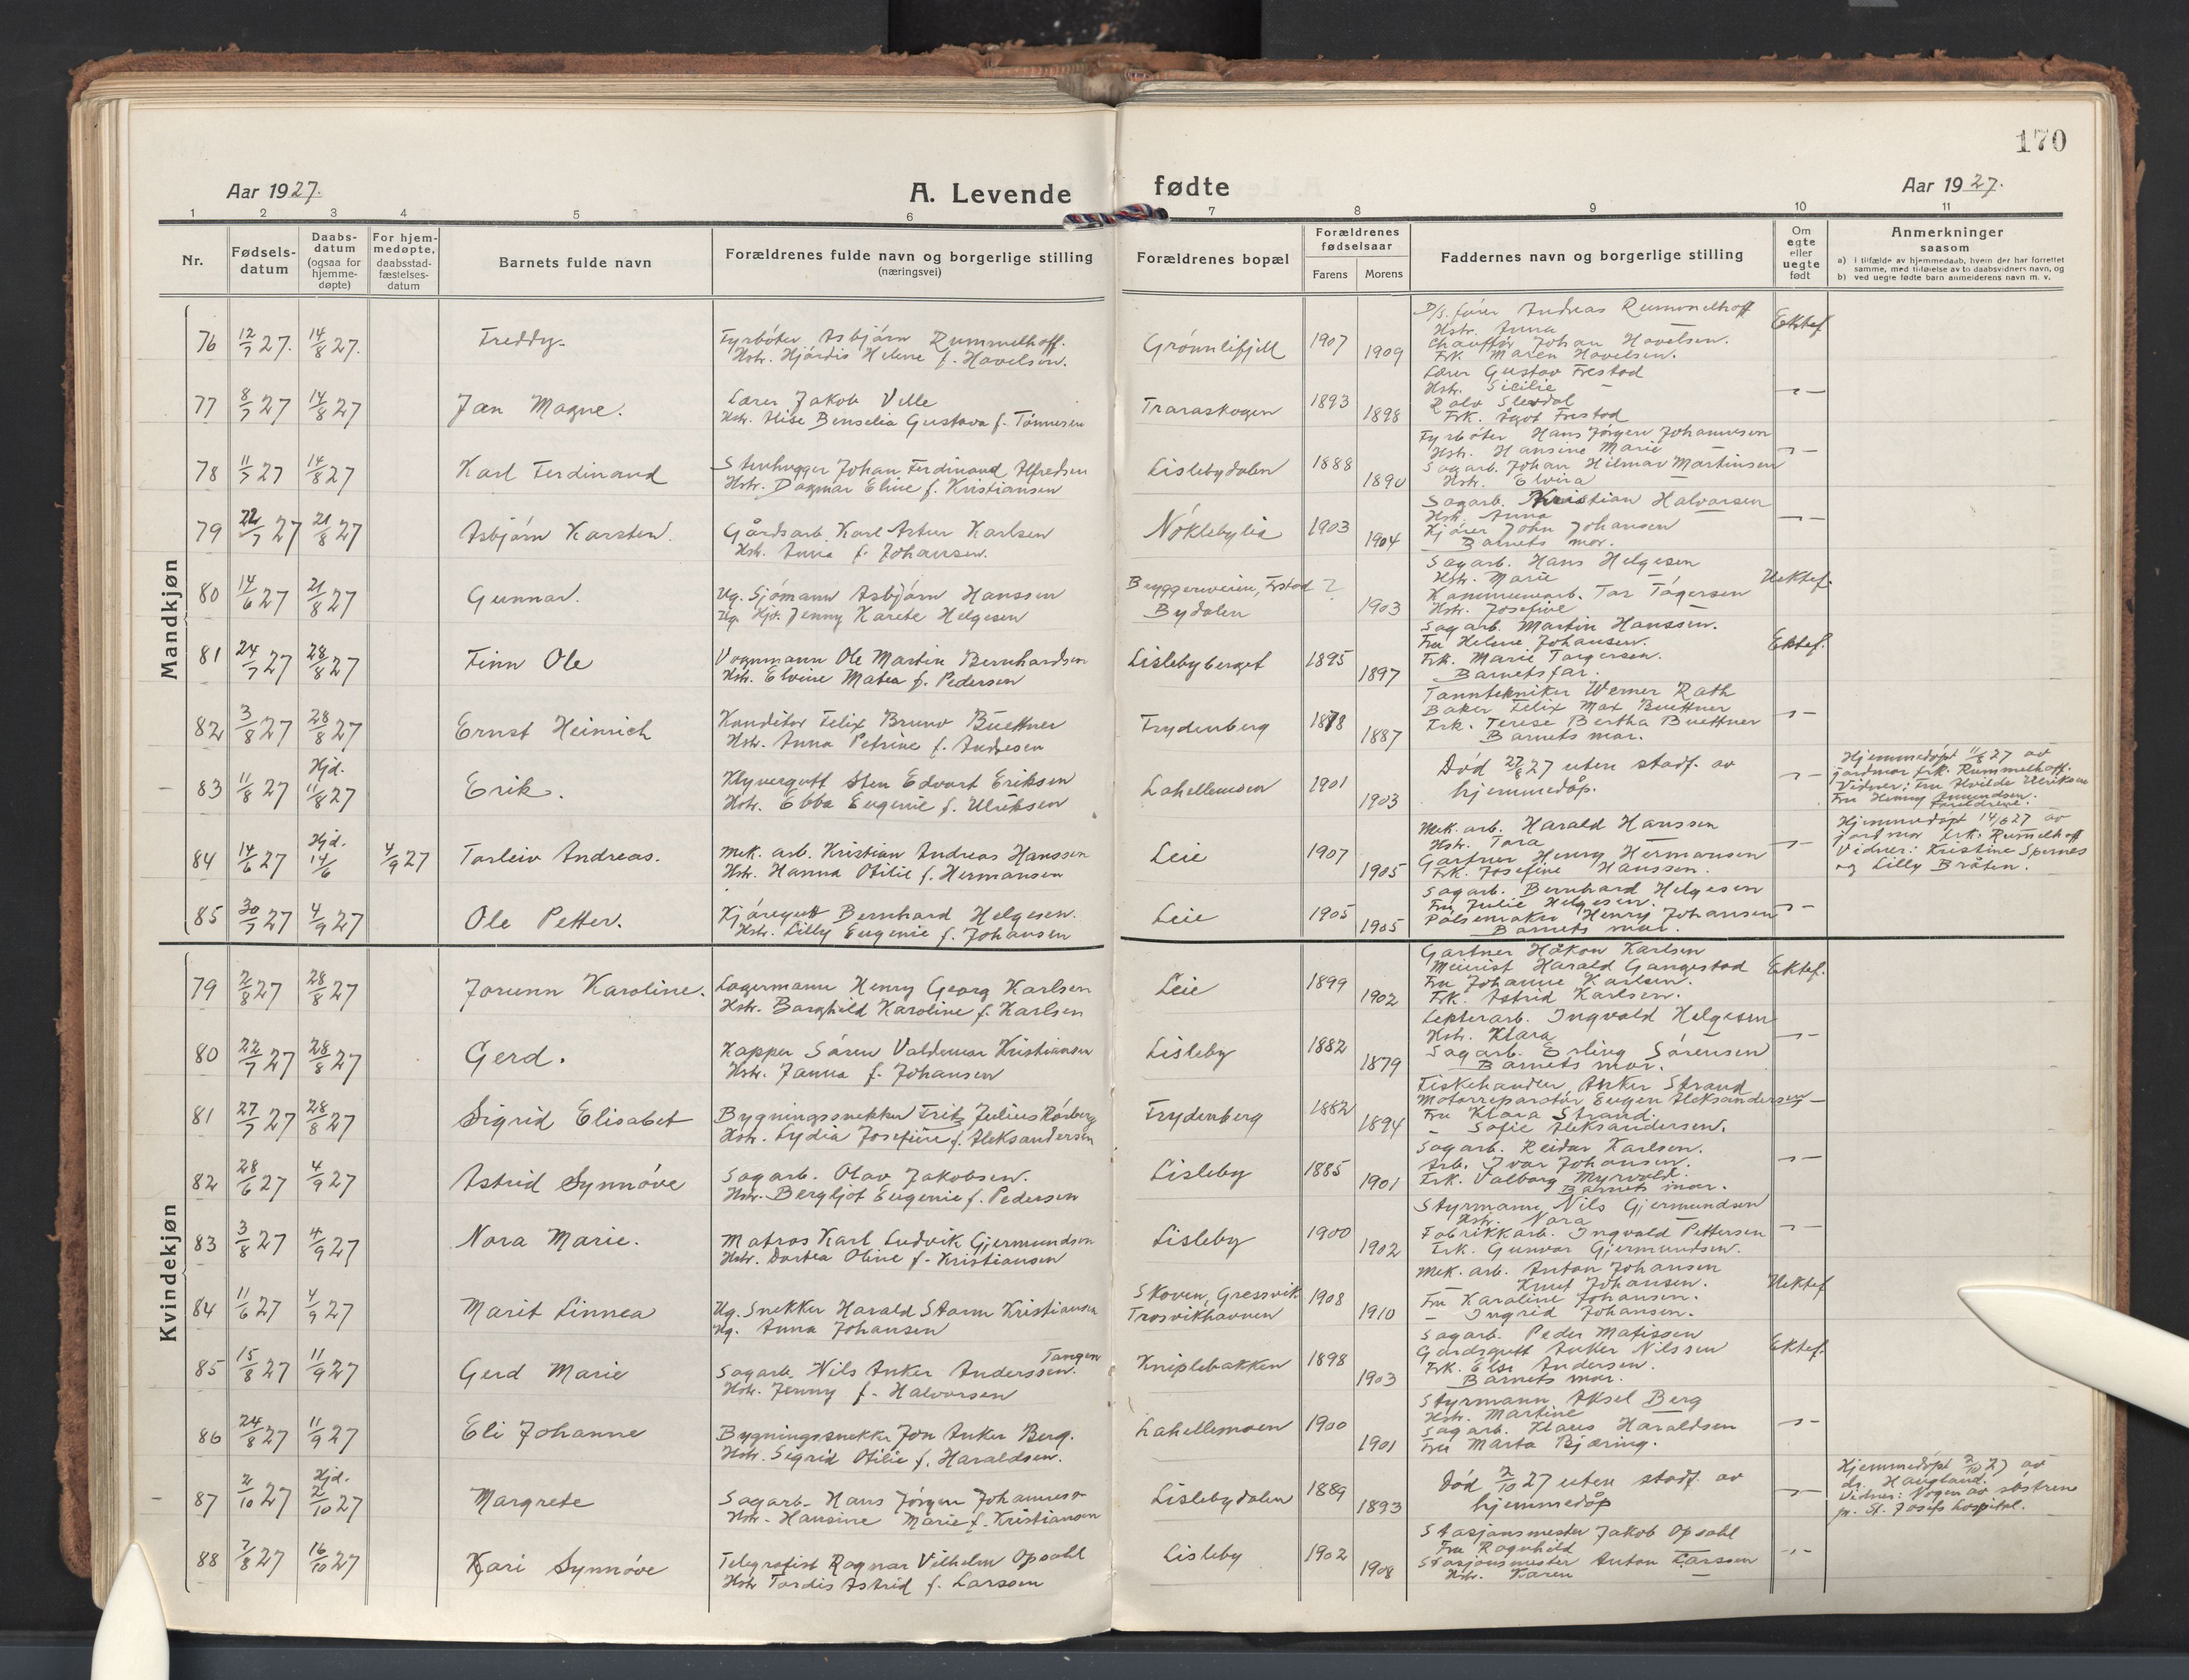 170
Aar 1927.
A. Levende fødte
Aar 1927.
1 2 3 4 5 6 7 8 9 10 11
Nr.
Fødsels-
datum
Daabs-
datum
(ogsaa for
hjemme-
døpte)
For hjem-
medøpte,
daabsstad-
fæstelses-
datum
Barnets fulde navn
Forældrenes fulde navn og borgerlige stilling
(næringsvei)
Forældrenes bopæl
Forældrenes
fødselsaar
Farens Morens
Faddernes navn og borgerlige stilling
Om
egte
eller
uegte
født
Anmerkninger
saasom
a) i tilfælde av hjemmedaab, hvem der har forrettet
samme, med tilføielse av to daabsvidners navn, og
b) ved uegte fødte barn anmelderens navn m. v.
Mandkjøn
76 12/7 27. 14/8 27. Freddy. Fyrbøter Asbjørn Rummelhoff.
Hstr. Hjørdis Helene f. Havelsen.
Grønnlifjell 1907 1909
D/s. fører Andreas Rummelhoff
Hstr. Anna
Chauffør Johan Havelsen.
Frk. Maren Havelsen.
Ektef.
77 8/7 27 14/8 27 Jan Magne. Lærer Jakob Velle
Hstr. Else Benselia Gustava f. Tønnesen
Traraskogen 1893 1898
Lærer Gustav Frestad
Hstr. Sicilie
Frk. Ågot Frestad
78 11/7 27 14/8 27 Karl Ferdinand Stenhugger Johan Ferdinand Alfredsen
Hstr. Dagmar Eline f. Kristiansen
Lislebydalen 1888 1890
Fyrbøter Hans Jørgen Johannesen
Hstr. Hansine Marie
Sagarb. Johan Hilmar Martinsen
Hstr. Elvira
79 22/7 27 21/8 27 Asbjørn Karsten. Gårdsarb. Karl Artur Karlsen
Hstr. Anna f. Johansen.
Nøklebylia 1903 1904
Sagarb. Kristian Halvorsen
Hstr. Anna
Kjører John Johansen
Barnets mor.
80 14/6 27 21/8 27 Gunnar. Ug. Sjømann Asbjørn Hanssen
Ug. Hjp. Jenny Karete Helgesen
Byggerveien, Frstad
Bydalen ? 1903
Sagarb. Hans Helgesen
Hstr. Marie
Kommunearb. Tor Togersen
Hstr. Josefine
Uektef.
81 24/7 27 28/8 27 Finn Ole Vognmann Ole Martin Bernhardsen
Hstr. Elvine Matea f. Pedersen
Lislebyberget 1895 1897
Sagarb. Martin Hanssen.
Fru Helene Johansen.
Frk. Marie Torgersen.
Barnets far.
Ektef.
82 3/8 27 28/8 27 Ernst Heinrich Konditor Felix Bruno Buettner
Hstr. Anna Petrine f. Andresen
Frydenberg 1878 1887
Tanntekniker Werner Rath
Baker Felix Max Buettner
Frk. Terese Bertha Buettner
Barnets mor.
83 11/8 27 Hjd. 11/8 27 Erik. Klyvergutt Sten Edvart Eriksen
Hstr. Ebba Eugenie f. Ulriksen
Lahellemoen 1901 1903
Død 27/8 27 uten stadf. av
hjemmedåp.
Hjemmedøpt 11/8 27 av
jordmor frk. Rummelhoff.
Vidner: Fru Alvilde Ulriksen
Fru Henny Amundsen.
Foreldrene.
84 14/6 27 Hjd. 14/6 4/9 27 Torleiv Andreas. Mek. arb. Kristian Andreas Hanssen
Hstr. Hanna Otilie f. Hermansen
Leie 1907 1905
Mek. arb. Harald Hanssen
Hstr. Tora
Gartner Henry Hermansen
Frk. Josefine Hanssen.
Hjemmedøpt 14/6 27 av
jordmor frk. Rummelhoff
Vidner: Kristine Spernes
og Lilly Bråten.
85 30/7 27 4/9 27 Ole Petter. Kjøregutt Bernhard Helgesen.
Hstr. Lilly Eugenie f. Johansen
Leie 1905 1905
Sagarb. Bernhard Helgesen
Fru Julie Helgesen.
Pølsemaker Henry Johansen
Barnets mor.
Kvindekjøn
79 2/8 27 28/8 27 Jorunn Karoline. Lagermann Henry Georg Karlsen
Hstr. Borghild Karoline f. Karlsen
Leie 1899 1902
Gartner Håkon Karlsen
Meierist Harald Gangestad
Fru Johanne Karlsen.
Frk. Astrid Karlsen.
Ektef.
80 22/7 27 28/8 27 Gerd. Kapper Søren Valdemar Kristiansen
Hstr. Janna f. Johansen
Lisleby 1882 1879
Lekterarb. Ingvald Helgesen
Hstr. Klara
Sagarb. Erling Sørensen
Barnets mor.
81 27/7 27 28/8 27 Sigrid Elisabet Bygningssnekker Fritz Julius Rørberg
Hstr. Lydia Josefine f. Aleksandersen
Frydenberg 1882 1894
Fiskehandler Anker Strand
Motorreparatør Eugen Aleksandersen
Fru Klara Strand.
– Sofie Aleksandersen.
82 28/6 27 4/9 27 Astrid Synnøve Sagarb. Olav Jakobsen.
Hstr. Bergljot Eugenie f. Pedersen
Lisleby 1885 1901
Sagarb. Reidar Karlsen.
Arb. Ivar Johansen.
Frk. Valborg Myrvold.
Barnets mor.
83 3/8 27 4/9 27 Nora Marie. Matros Karl Ludvik Gjermundsen
Hstr. Dortea Oline f. Kristiansen
Lisleby 1900 1902
Styrmann Nils Gjermundsen
Hstr. Nora
Fabrikkarb. Ingvald Pettersen
Frk. Gunvor Gjermundsen.
84 11/6 27 4/9 27 Marit Linnea Ug. Snekker Harald Storm Kristiansen
Ug. Anna Johansen
Skoven, Gressvik
Trosvikhavnen 1908 1910
Mek. arb. Anton Johansen
– Knut Johansen.
Fru Karoline Johansen.
– Ingrid Johansen.
Uektef
85 15/8 27 11/9 27 Gerd Marie Sagarb. Nils Anker Anderssen. Tangen
Hstr. Jenny f. Halvorsen
Kniplebakken 1898 1903
Sagarb. Peder Matissen
Gårdsgutt Anker Nilssen
Frk. Else Andersen.
Barnets mor.
Ektef.
86 24/8 27 11/9 27 Eli Johanne Bygningssnekker Jon Anker Berg.
Hstr. Sigrid Otilie f. Haraldsen.
Lahellemoen 1900 1901
Styrmann Aksel Berg
Hstr. Martine
Sagarb. Klaus Haraldsen
Fru Marta Bjæring.
87 2/10 27 Hjd. 2/10 27 Margrete Sagarb. Hans Jørgen Johannesen
Hstr. Hansine Marie f. Kristiansen
Lislebydalen 1889 1893
Død 2/10 27 uten stadf. av
hjemmedåp
Hjemmedøpt 2/10 27 av
dr. Haugland.
Vidner: Nogen av søstrene
pr. St. Josefs hospital.
88 7/8 27 16/10 27 Kari Synnøve Telegrafist Ragnar Vilhelm Opsahl
Hstr Tordis Astrid f. Larssen
Lisleby 1902 1908
Stasjonsmester Jakob Opsahl
Fru Ragnhild
Stasjonsmester Anton Larssen
Hstr. Karen